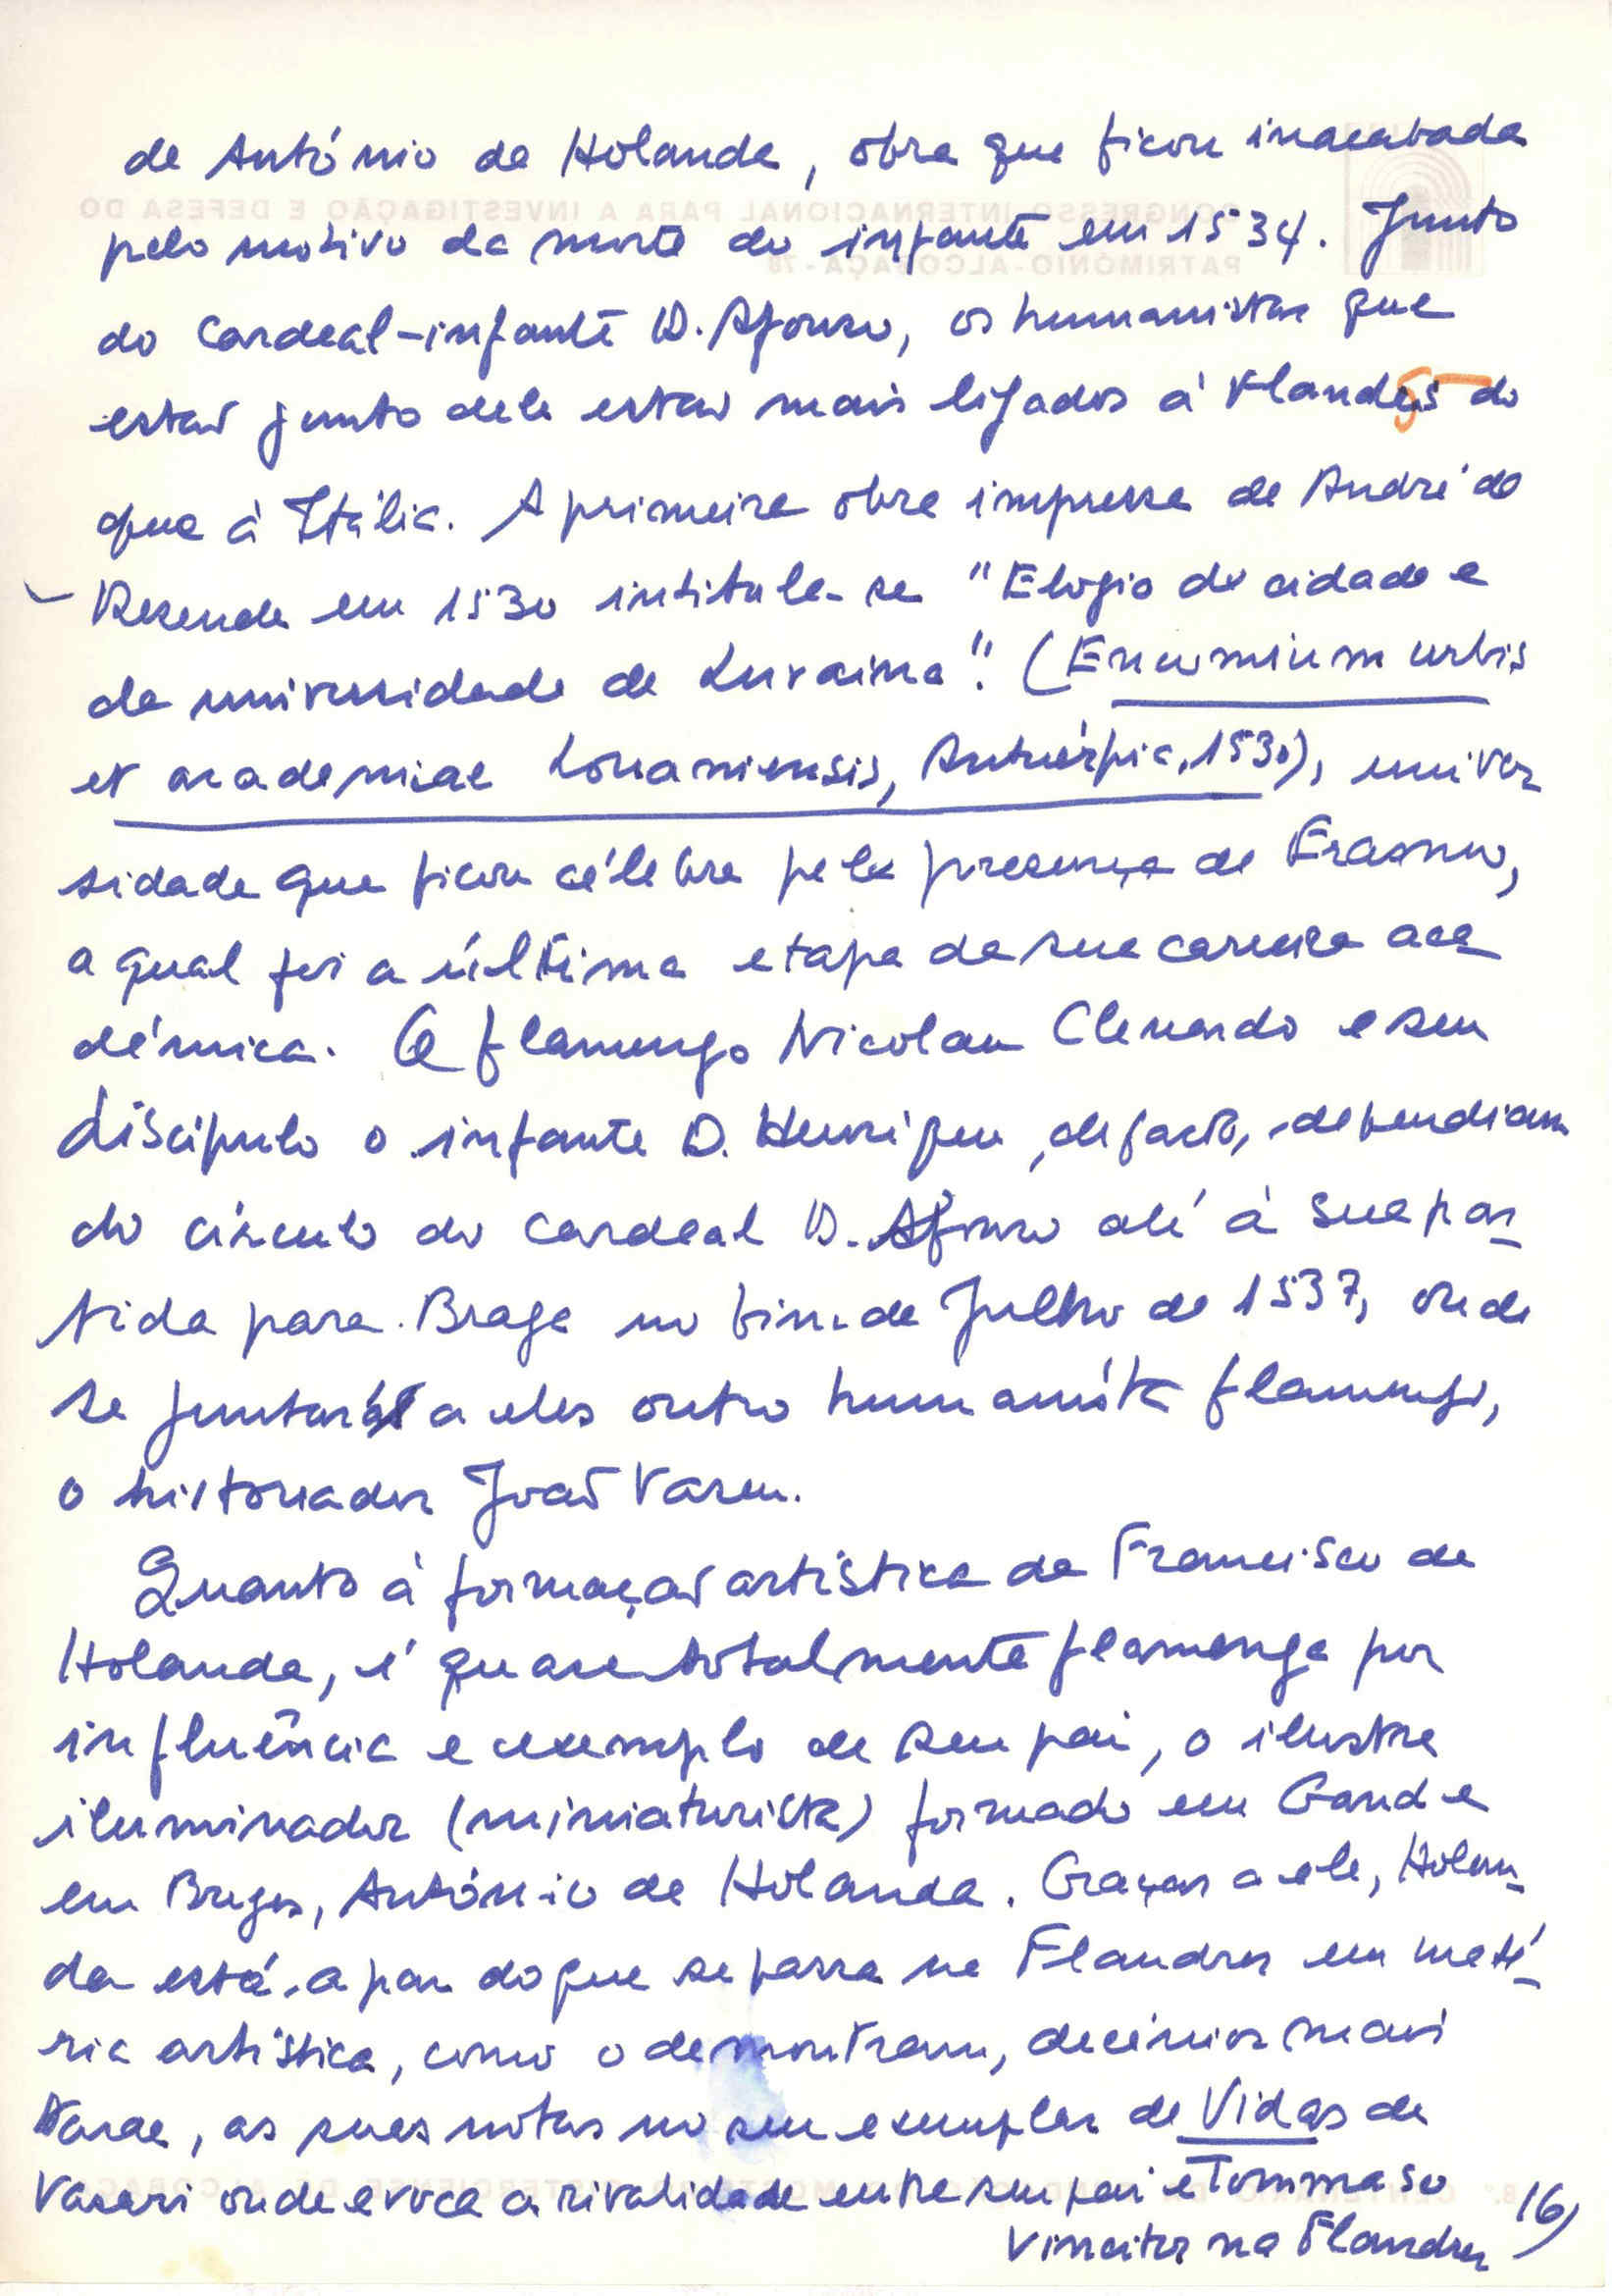 de António de Holanda, obra que ficou inacabada
pelo motivo da morte do infante em 1534. Junto
do Cardeal-infante D. Afonso, os humanistas que
estão junto dele estão mais ligados à Flandres do
que à Itália. A primeira obra impressa de André de
Resende em 1530 intitula-se "Elogio da cidade e
da universidade de Luvaina". (Encomium urbis
et academiae Lovaniensis, Antuérpia, 1530), univer
sidade que ficou célebre pela presença de Erasmo,
a qual foi a última etapa da sua carreira aca
démica. O flamengo Nicolau Clenardo e seu
discípulo o infante D. Henrique, de facto, dependiam
do círculo do Cardeal D. Afonso até à sua par_
tida para Braga no fim de Julho de 1537, onde
se juntará a eles outro humanista flamengo,
o historiador João Vaseu.
Quanto à formação artística de Francisco de
Holanda, é quase totalmente flamenga por
influência e exemplo de seu pai, o ilustre
iluminador (miniaturista) formado em Gand e
em Bruges, António de Holanda. Graças a ele, Holan_
da está a par do que se passa na Flandres em maté_
ria artística, como o demontram, decénios mais
tarde, as suas notas no seu exemplar de Vidas de
Vasari onde evoca a rivalidade entre seu pai e Tommaso
Vincitor na Flandres
16)
CONGRESSO INTERNACIONAL PARA A INVESTIGAÇÃO E DEFESA DO
PATRIMÓNIO - ALCOBAÇA - 78